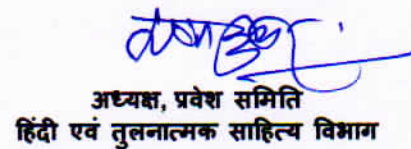 अध्यक्ष, प्रवेश समिति
हिंदी एवं तुलनात्मक साहित्य विभाग